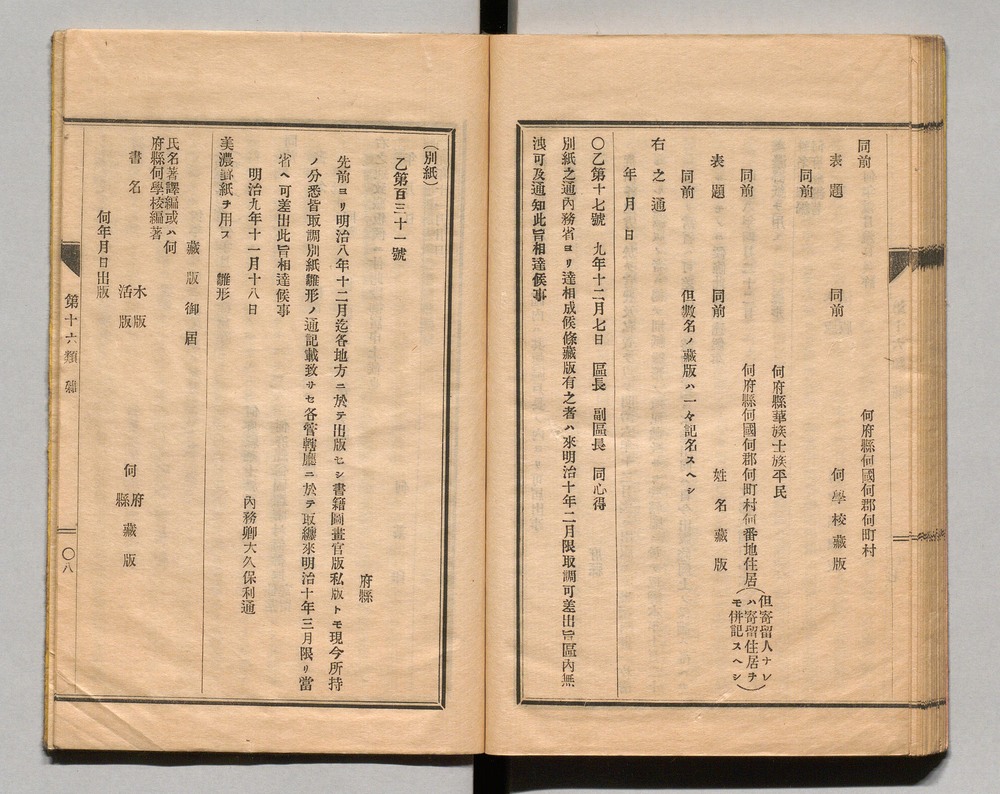 同前　何府縣何國何郡何町村
表題　同前　何學校藏版
同前
何府縣華族士族平民
同前　何府縣何國何郡何町村何番地住居（但寄留人ナレ
ハ寄留住居ヲ
モ併記スヘシ）
表題　同前　姓名藏版
同前　但數名ノ藏版ハ一々記名スヘシ
右之通
年月日
〇乙第十七號　九年十二月七日　區長　副區長　同心得
別紙之通內務省ヨリ達相成候條藏版有之者ハ來明治十年二月限取調可差出旨區內無
洩可及通知此旨相達候事
（別紙）
乙第百三十一號
府縣
先前ヨリ明治八年十二月迄各地方ニ於テ出版セシ書籍圖畫官版私版トモ現今所持
ノ分悉皆取調別紙雛形ノ通記載致サセ各管轄廳ニ於テ取纏來明治十年三月限リ當
省ヘ可差出此旨相達候事
明治九年十一月十八日
內務卿大久保利通
美濃罫紙ヲ用フ　雛形
藏版御屆
氏名著譯編或ハ何
府縣何學校編著
書名　木版
活版　何府
縣藏版
何年月日出版
第十六類　雜
〇八